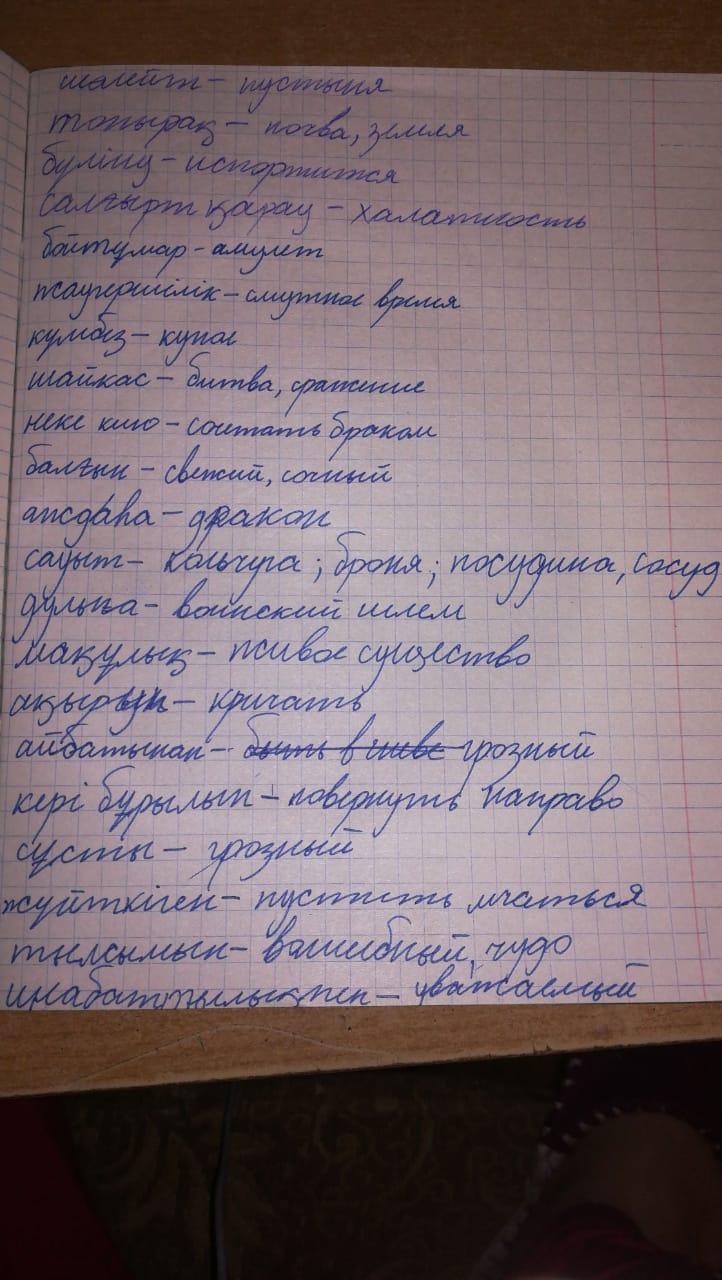 шөлейт – пустыня
топырақ – почва, земля
бүліну – испортится
салғырт қарау – халатность
бойтұмар – амулет
жаугершілік – смутное время
күмбіз – купол
шайқас – битва, сражение
неке қию – сочетать браком
балғын – свежий, сочный
аждаһа – дракон
сауыт – кольчуга; броня; посудина, сосуд
дулыға – воинский шлем
мақұлық – живое существо
ақырып – кричать
айбатынан – грозный
кері бұрылып – повернуть направо
сұсты – грозный
жүйткіген – пустить мчаться
тылсымын – волшебный, чудо
инабаттылықпен – уважаемый